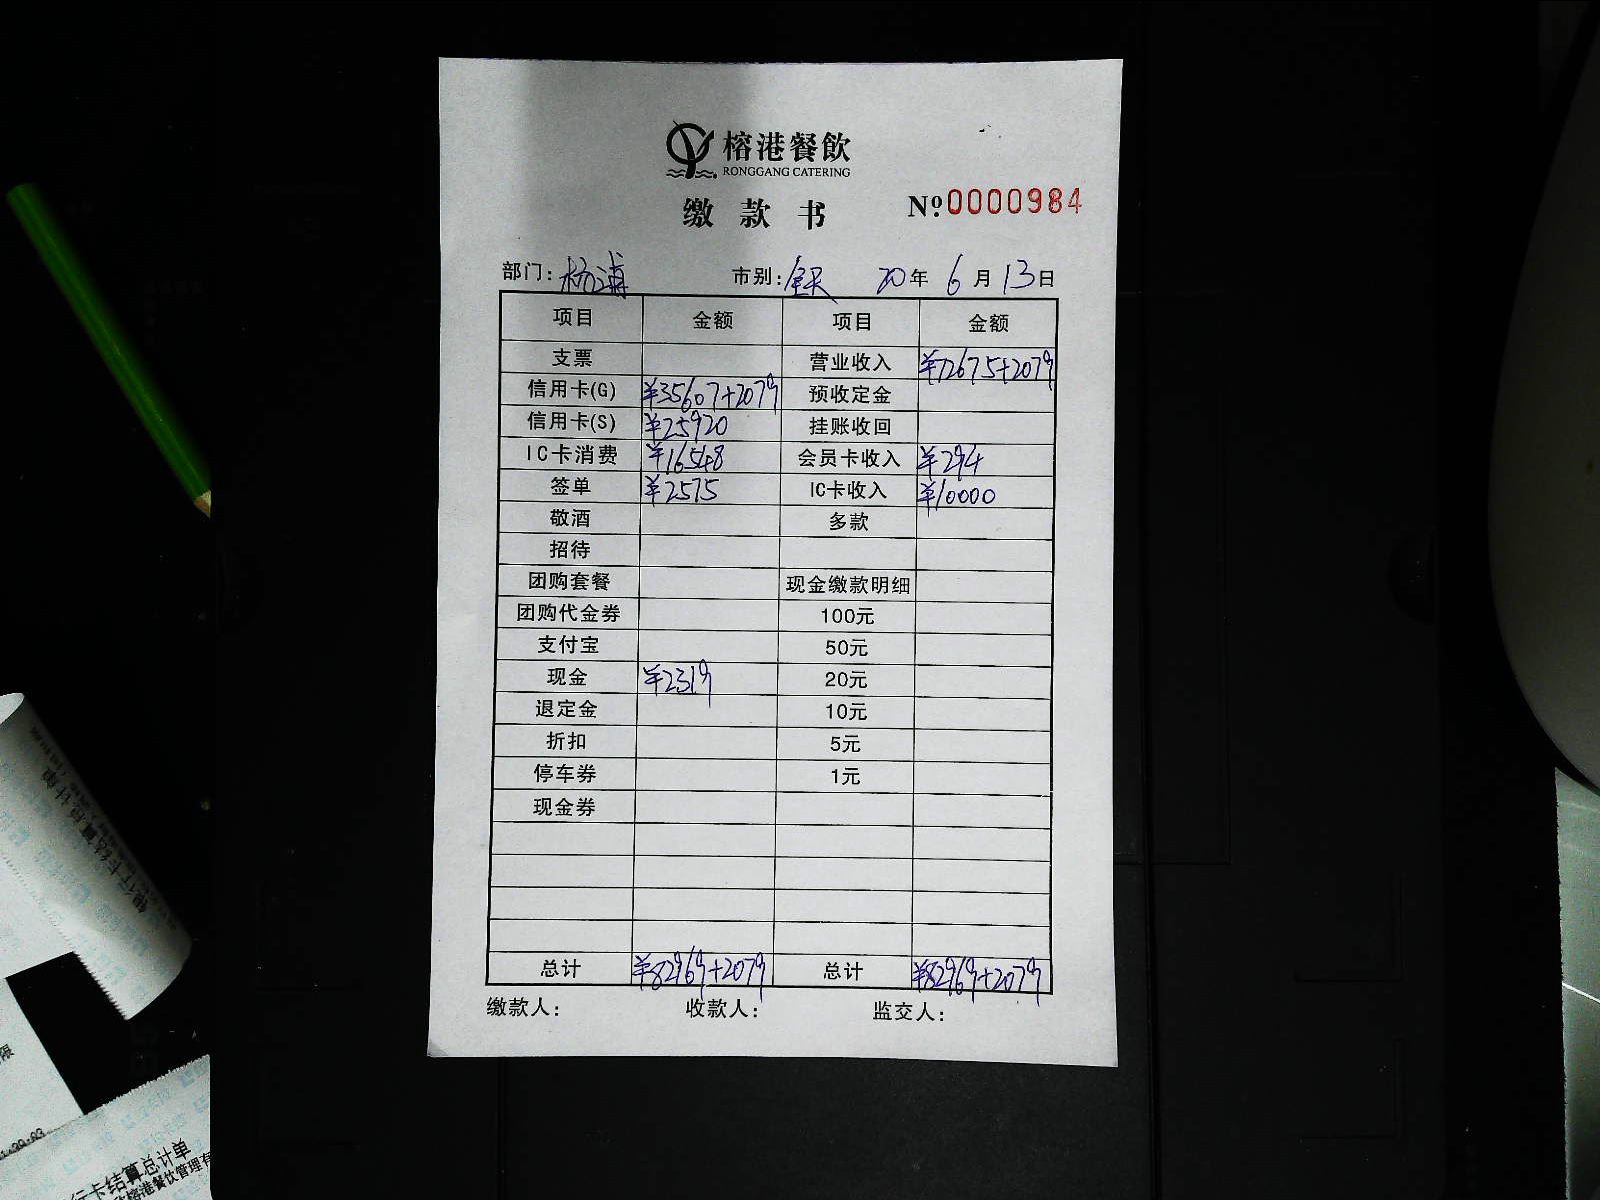 榕港餐飲
RONGGANG CATERING
缴款书
Nº0000984
部门:杨浦 市别:全天 20年6月13日
项目 金额 项目 金额
支票 营业收入 ¥72675+2079
信用卡(G) ¥35607+2079 预收定金
信用卡(S) ¥25920 挂账收回
IC卡消费 ¥16548 会员卡收入 ¥294
签单 ¥2575 IC卡收入 ¥10000
敬酒 多款
招待
团购套餐 现金缴款明细
团购代金券 100元
支付宝 50元
现金 ¥2319 20元
退定金 10元
折扣 5元
停车券 1元
现金券
总计 ¥82969+2079 总计 ¥82969+2079
缴款人: 收款人: 监交人:
银行卡结算总计单
限
行卡结算总计单
榕港餐饮管理有